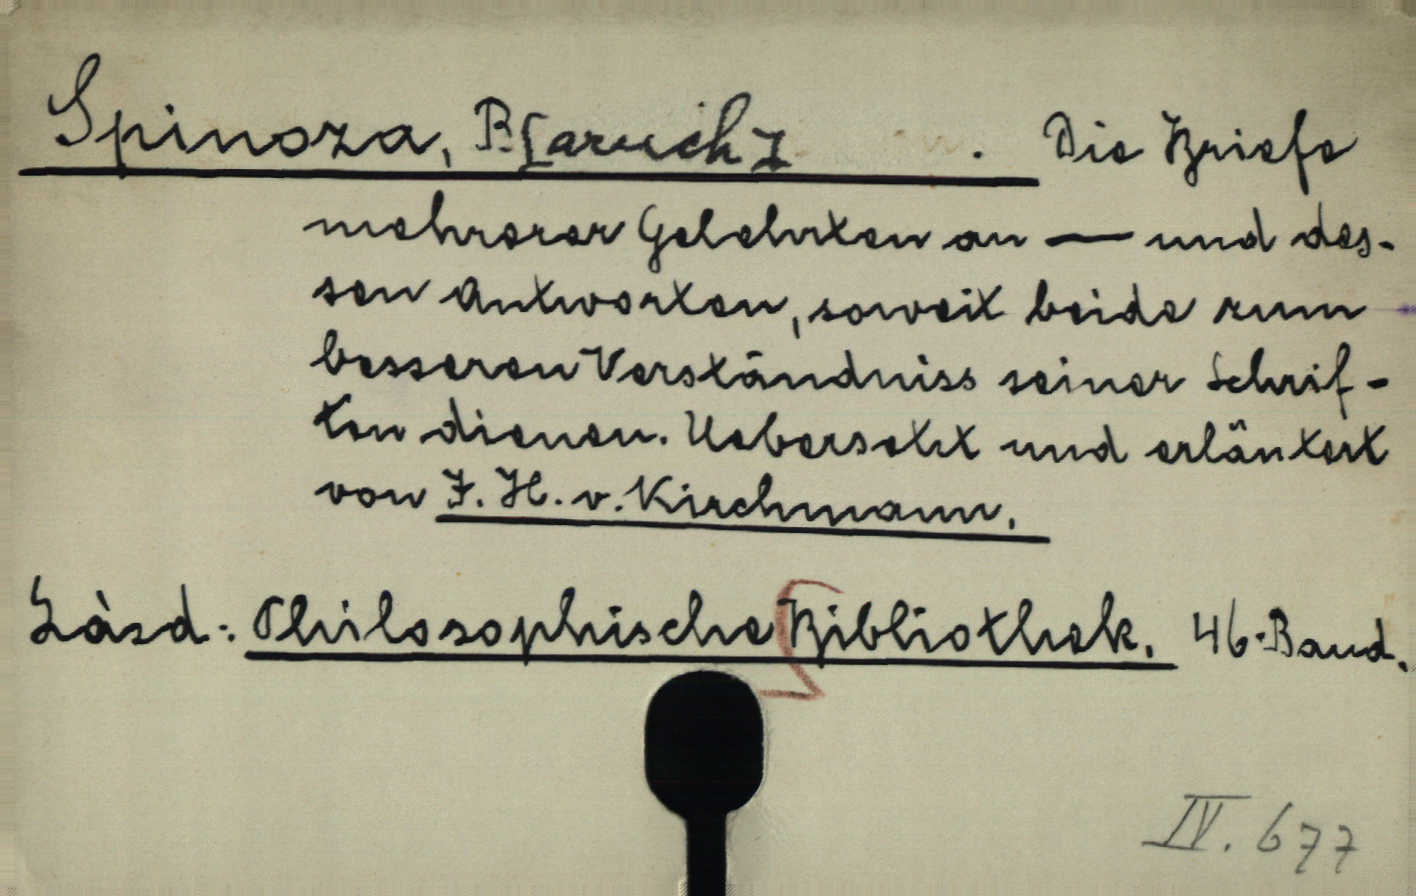 Spinoza, B[aruch]. Die Briefe
mehrerer Gelehrten an — und des-
sen Antworten, soweit beide zum
besseren Verständniss seiner Schrif-
ten dienen. Uebersetzt und erläutert
von J. H. v. Kirchmann.
Lásd: Philosophische Bibliothek. 46. Band.
IV. 677